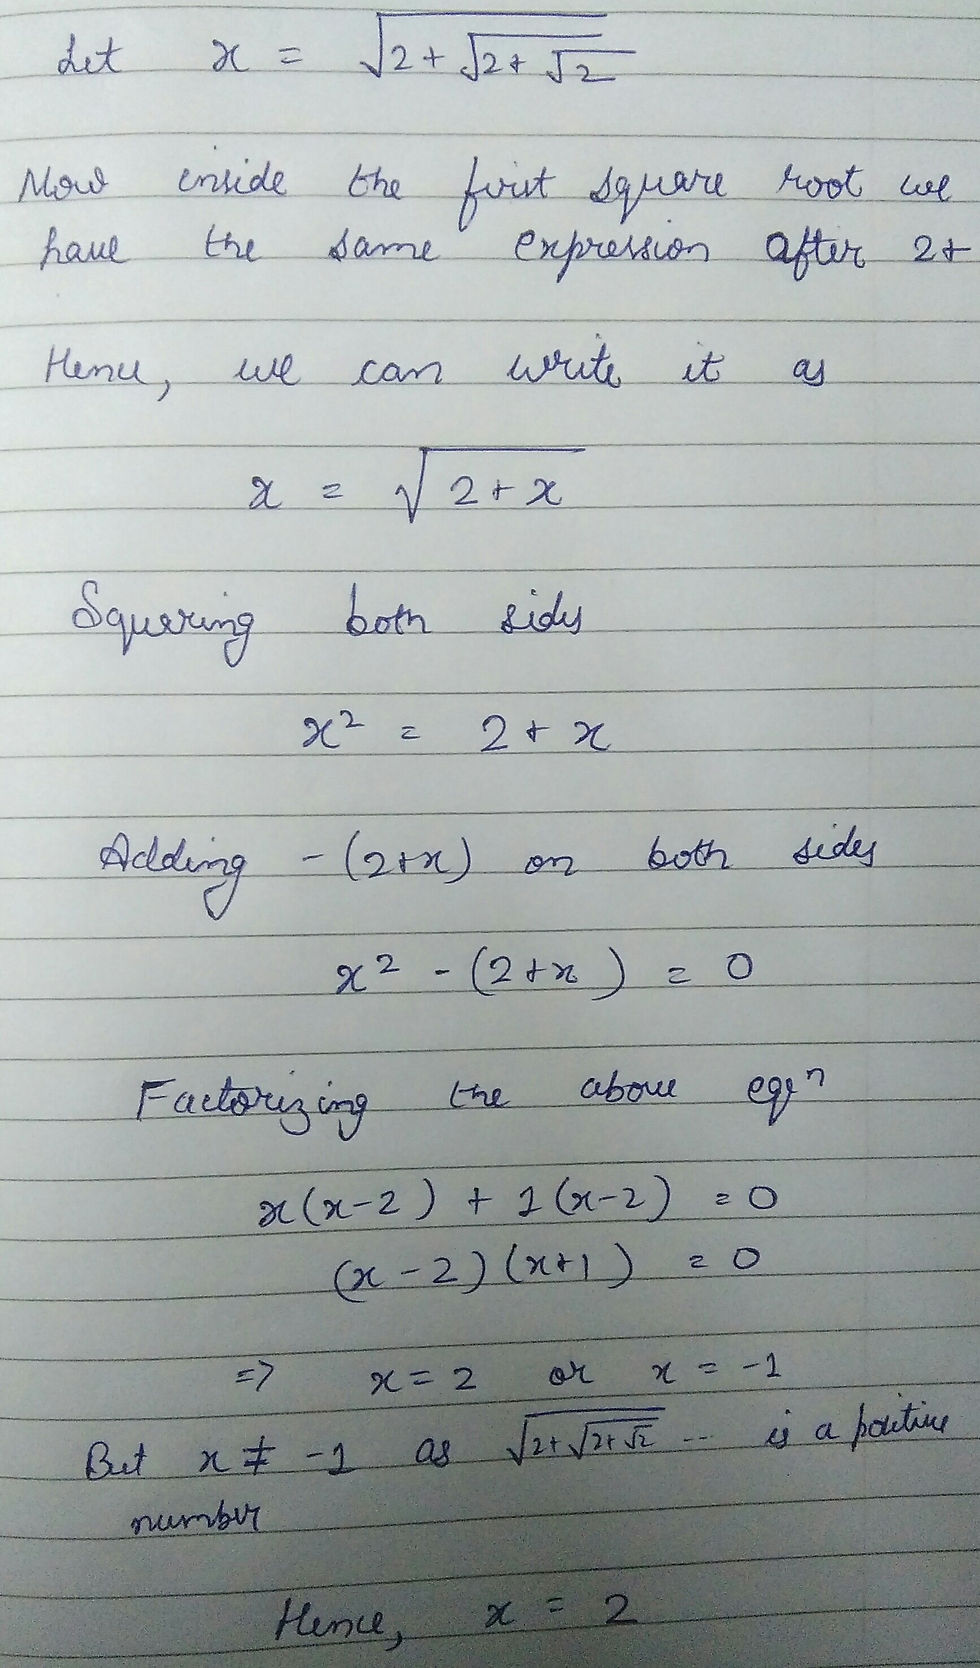 Let x = √2 + √2 + √2
Now inside the first square root we
have the same expression after 2+
Hence, we can write it as
x = √2 + x
Squaring both sides
x² = 2 + x
Adding - (2+x) on both sides
x² - (2+x) = 0
Factorizing the above eqⁿ
x(x-2) + 1(x-2) = 0
(x-2)(x+1) = 0
=> x = 2 or x = -1
But x ≠ -1 as √2+√2+√2 ... is a positive
number
Hence, x = 2